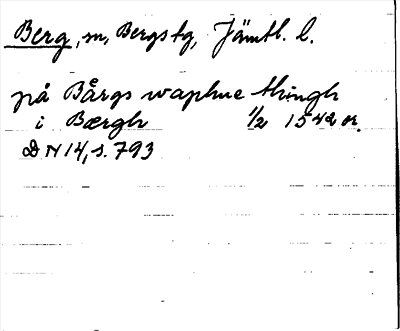 Berg, sn, Bergs tg, Jämtl. l.
på Bårgs waphne thingh
i Bærgh 1/2 1542 or.
DN 14, s. 793